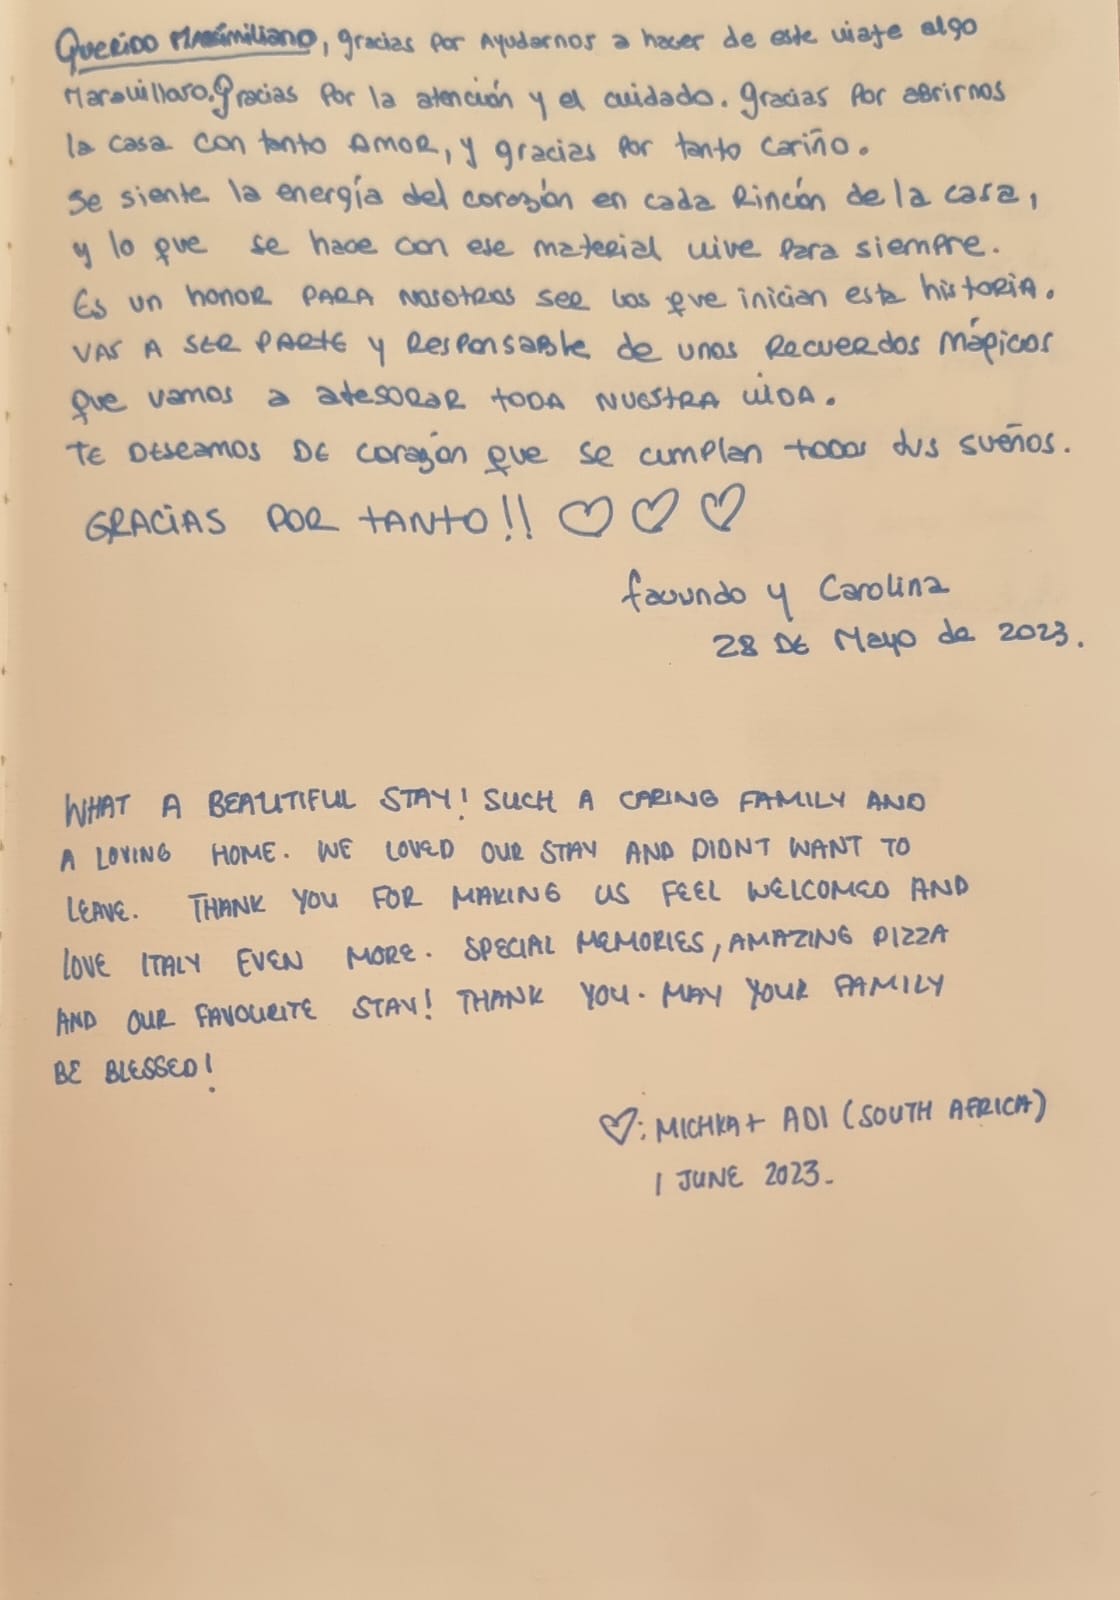 Querido Maximiliano, gracias por Ayudarnos a hacer de este viaje algo
Maravilloso. Gracias por la atención y el cuidado. gracias por abrirnos
la casa con tanto AMOR, y gracias por tanto cariño.
Se siente la energía del corazón en cada Rincón de la casa,
y lo que se hace con ese material vive para siempre.
Es un honor PARA NOSOTROS SER los que inician esta historia.
VAS A SER PARTE y Responsable de unos Recuerdos Mágicos
que vamos a atesorar toda NUESTRA VIDA.
TE Deseamos DE corazón que se cumplan todos tus sueños.
GRACIAS POR TANTO!! ♡ ♡ ♡
facundo y Carolina
28 DE Mayo de 2023.
WHAT A BEAUTIFUL STAY! SUCH A CARING FAMILY AND
A LOVING HOME. WE LOVED OUR STAY AND DIDNT WANT TO
LEAVE. THANK YOU FOR MAKING US FEEL WELCOMED AND
LOVE ITALY EVEN MORE. SPECIAL MEMORIES, AMAZING PIZZA
AND OUR FAVOURITE STAY! THANK YOU. MAY YOUR FAMILY
BE BLESSED!
♡: MICHKA + ADI (SOUTH AFRICA)
1 JUNE 2023.